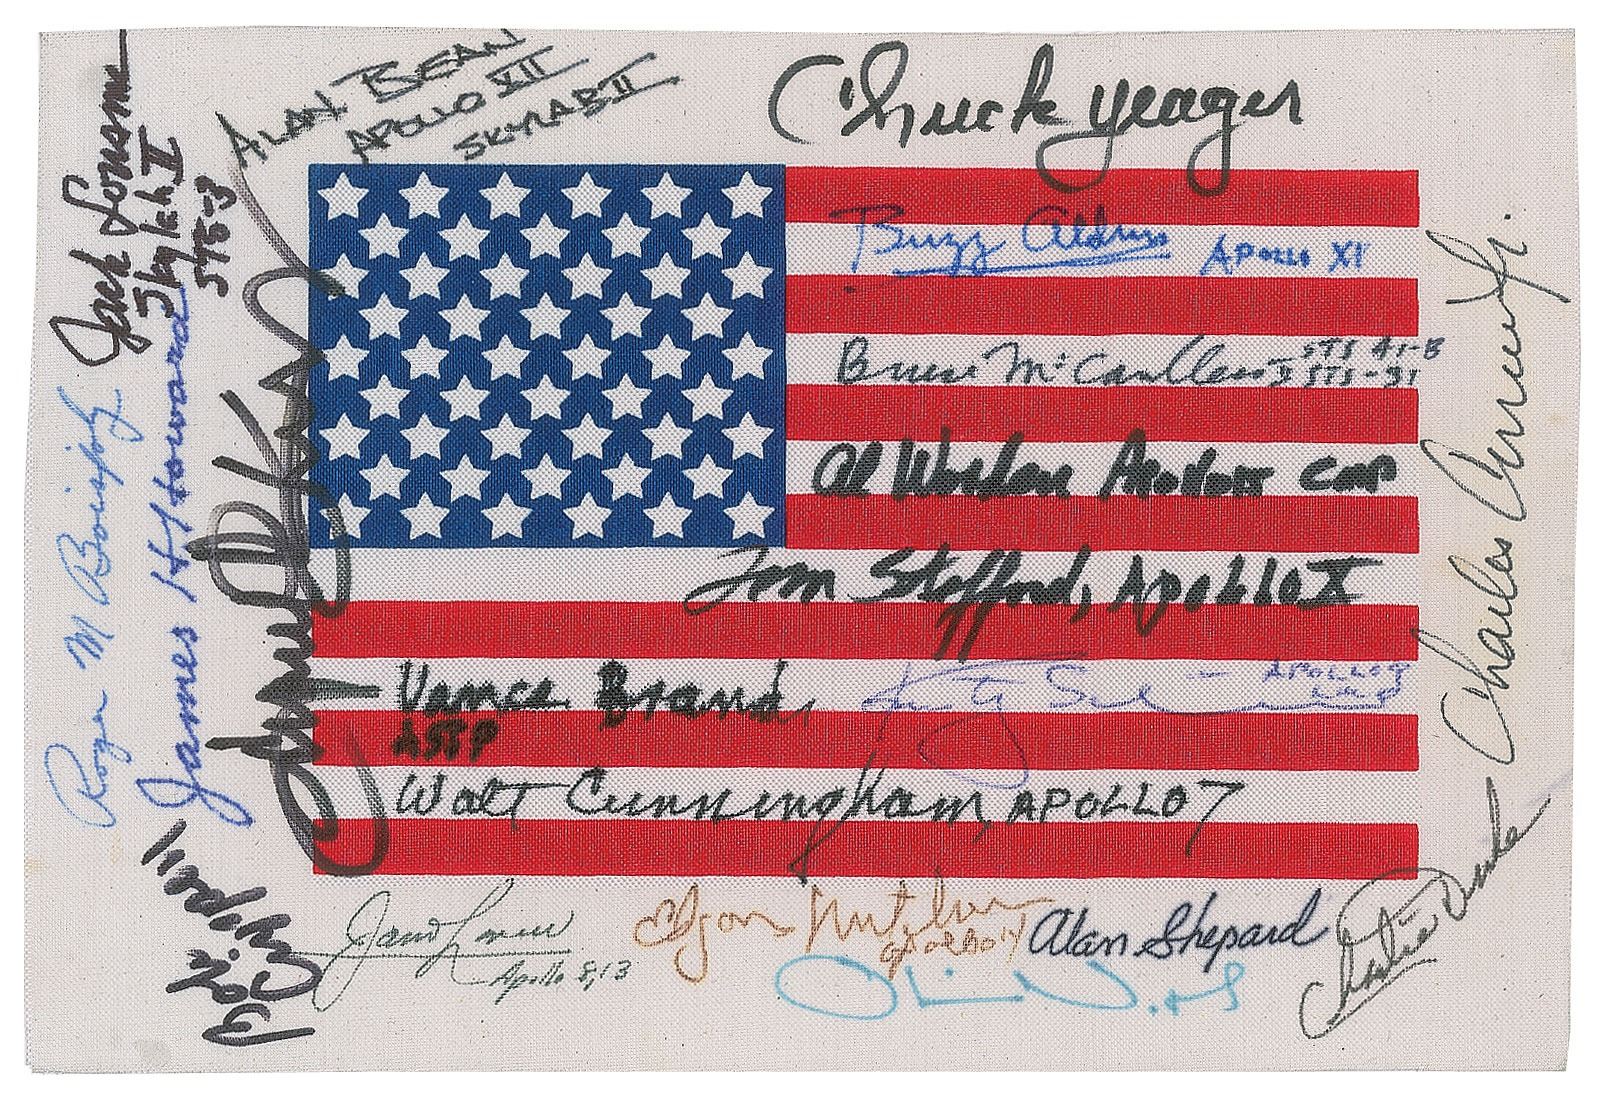 ALAN BEAN
APOLLO XII
SKYLAB II
Chuck Yeager
Jack Lousma
Skylab II
STS-3
Buzz Aldrin APOLLO XI
Bruce McCandless II STS 41-B
STS-31
Al Worden Apollo CMP
Tom Stafford, Apollo X
Vance Brand,
ASTP
APOLLO 7
Walt Cunningham, APOLLO 7
Roger M Boisjoly
James Howard
Charles Jr.
James Lovell
Apollo 8, 13
Edgar Mitchell
Apollo 14
Alan Shepard
Charlie Duke